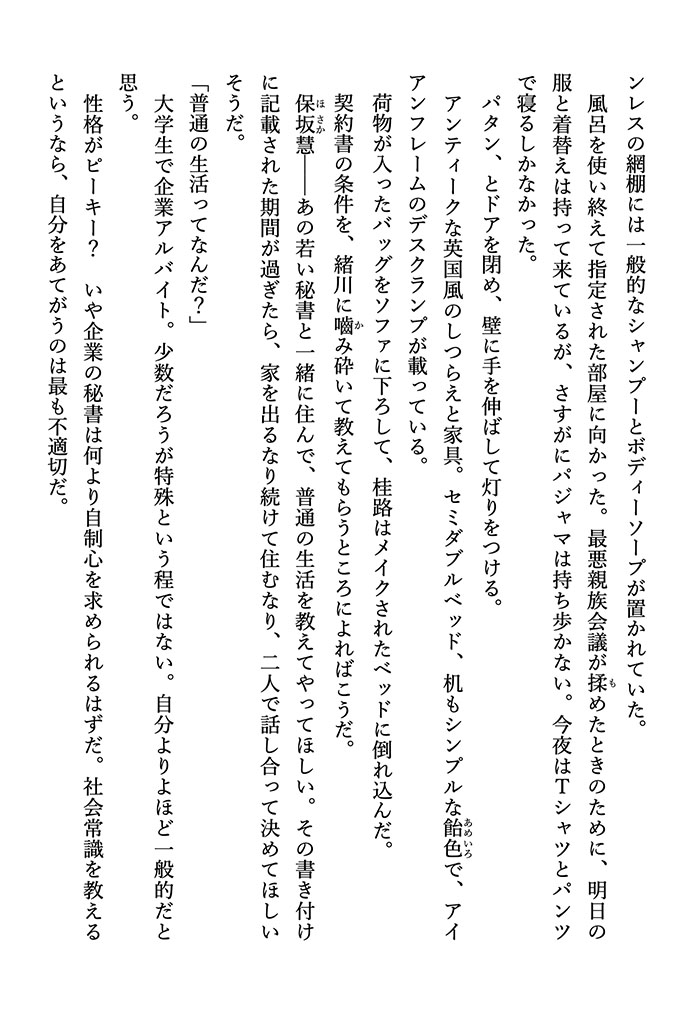 ンレスの網棚には一般的なシャンプーとボディーソープが置かれていた。
　風呂を使い終えて指定された部屋に向かった。最悪親族会議が揉めたときのために、明日の
服と着替えは持って来ているが、さすがにパジャマは持ち歩かない。今夜はTシャツとパンツ
で寝るしかなかった。
　パタン、とドアを閉め、壁に手を伸ばして灯りをつける。
　アンティークな英国風のしつらえと家具。セミダブルベッド、机もシンプルな飴色で、アイ
アンフレームのデスクランプが載っている。
　荷物が入ったバッグをソファに下ろして、桂路はメイクされたベッドに倒れ込んだ。
　契約書の条件を、緒川に嚙み砕いて教えてもらうところによればこうだ。
　保坂慧――あの若い秘書と一緒に住んで、普通の生活を教えてやってほしい。その書き付け
に記載された期間が過ぎたら、家を出るなり続けて住むなり、二人で話し合って決めてほしい
そうだ。
「普通の生活ってなんだ？」
　大学生で企業アルバイト。少数だろうが特殊という程ではない。自分よりよほど一般的だと
思う。
　性格がピーキー？　いや企業の秘書は何より自制心を求められるはずだ。社会常識を教える
というなら、自分をあてがうのは最も不適切だ。